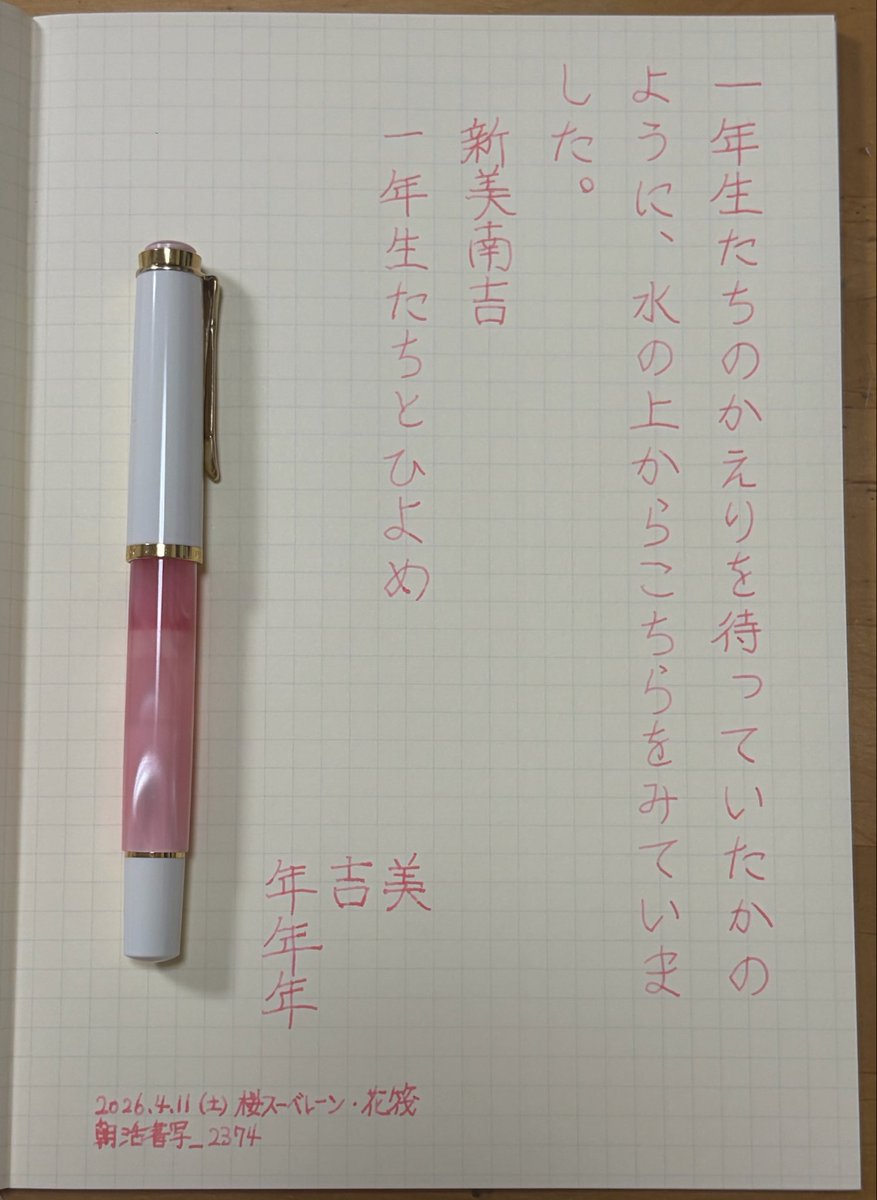 一年生たちのかえりを待っていたかの
ように、水の上からこちらをみていま
した。
新美南吉
一年生たちとひよめ
美
吉
年年年
2026.4.11(土)桜スーベレーン・花筏
朝活書写_2374